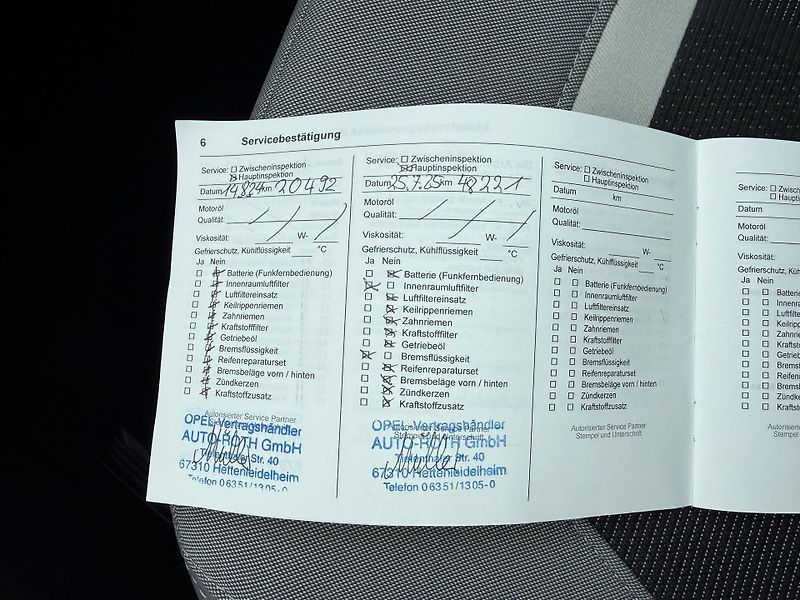 6 Servicebestätigung
Service: Zwischeninspektion
Hauptinspektion
Datum 14.8.24 km 20492
Motoröl
Qualität:
Viskosität: W-
Gefrierschutz, Kühlflüssigkeit °C
Ja Nein
Batterie (Funkfernbedienung)
Innenraumluftfilter
Luftfiltereinsatz
Keilrippenriemen
Zahnriemen
Kraftstofffilter
Getriebeöl
Bremsflüssigkeit
Reifenreparaturset
Bremsbeläge vorn / hinten
Zündkerzen
Kraftstoffzusatz
Autorisierter Service Partner
OPEL-Vertragshändler
AUTO-ROTH GmbH
Str. 40
67310 Hettenleidelheim
Telefon 06351/1305-0
Service: Zwischeninspektion
Hauptinspektion
Datum 25.7.25 km 48221
Motoröl
Qualität:
Viskosität: W-
Gefrierschutz, Kühlflüssigkeit °C
Ja Nein
Batterie (Funkfernbedienung)
Innenraumluftfilter
Luftfiltereinsatz
Keilrippenriemen
Zahnriemen
Kraftstofffilter
Getriebeöl
Bremsflüssigkeit
Reifenreparaturset
Bremsbeläge vorn / hinten
Zündkerzen
Kraftstoffzusatz
OPEL-Vertragshändler
AUTO-ROTH GmbH
Stempel und Unterschrift
Str. 40
67310 Hettenleidelheim
Telefon 06351/1305-0
Service: Zwischeninspektion
Hauptinspektion
Datum km
Motoröl
Qualität:
Viskosität: W-
Gefrierschutz, Kühlflüssigkeit °C
Ja Nein
Batterie (Funkfernbedienung)
Innenraumluftfilter
Luftfiltereinsatz
Keilrippenriemen
Zahnriemen
Kraftstofffilter
Getriebeöl
Bremsflüssigkeit
Reifenreparaturset
Bremsbeläge vorn / hinten
Zündkerzen
Kraftstoffzusatz
Autorisierter Service Partner
Stempel und Unterschrift
Service:
Datum
Motoröl
Qualität:
Viskosität:
Gefrierschutz,
Ja Nein